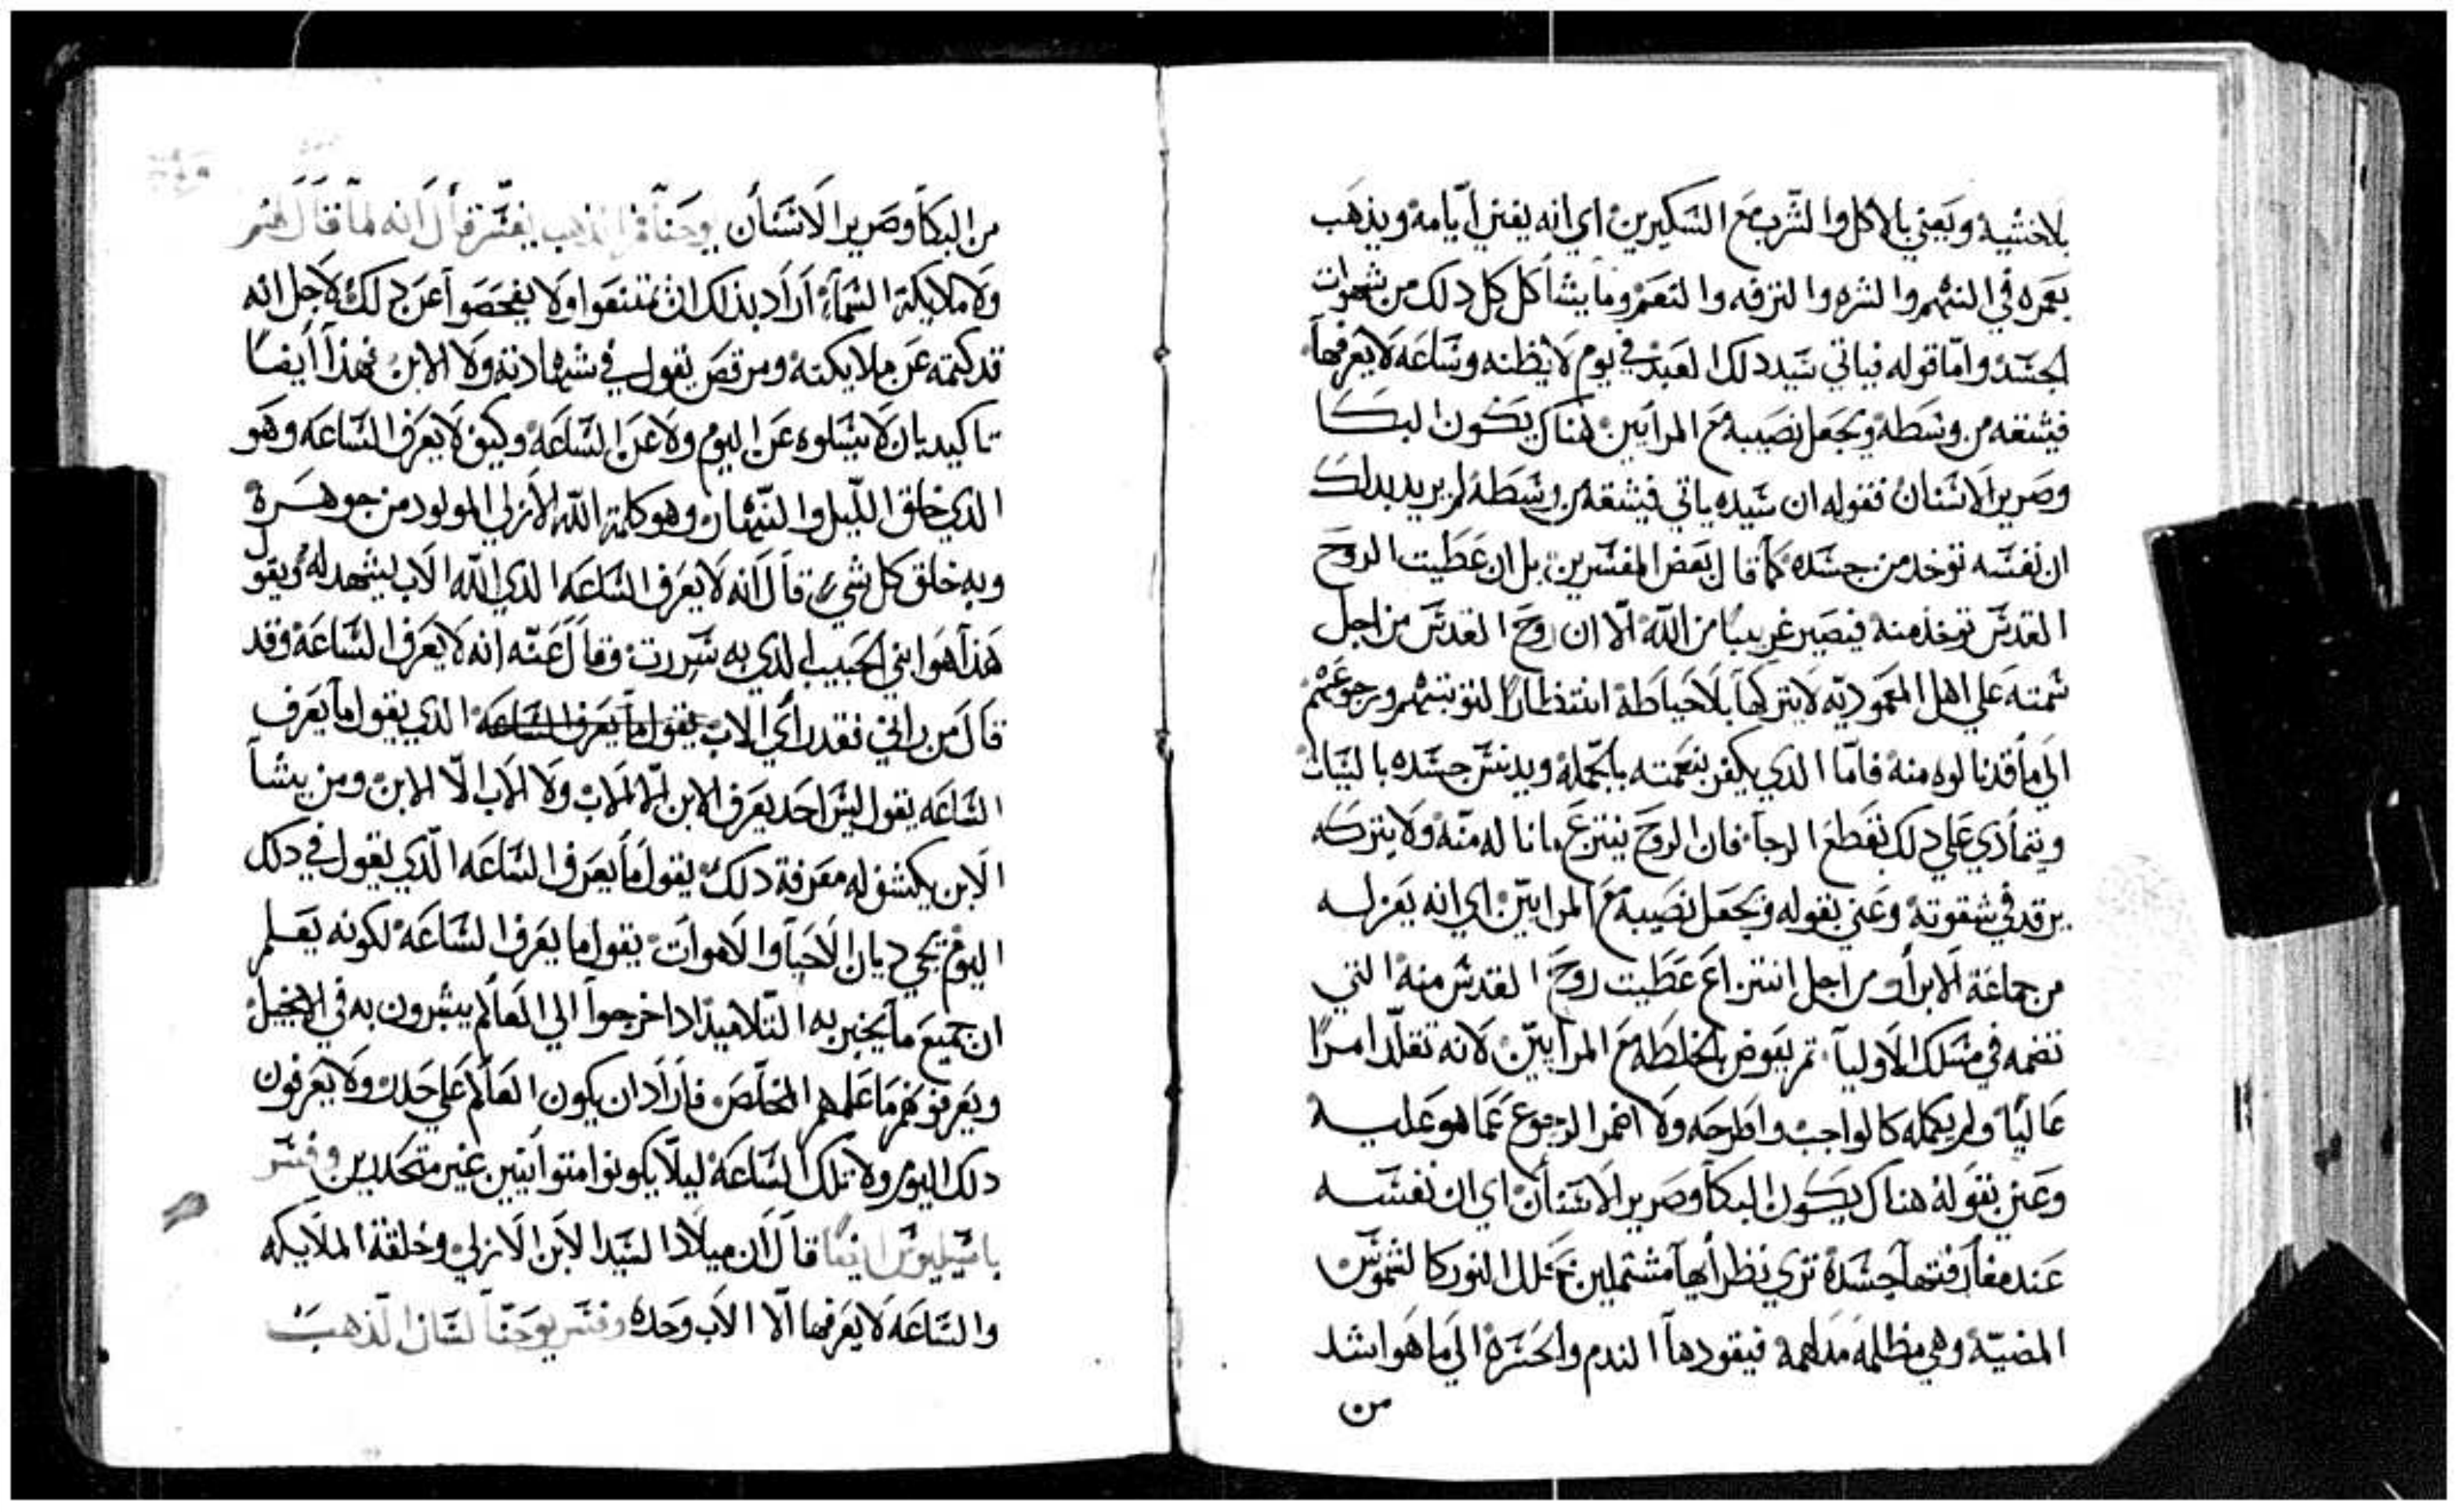 بلاخشيه ويعني بالاكل والشرب مع السكيرين اي انه يفني ايامه ويذهب
بعمره في النهم والشره والترفه والتنعم وما يشاكل كل دلك من شهوات
الجسد واما قوله فياتي سيد دلك العبد في يوم لا يظنه وساعه لا يعرفها
فيشقه من وسطه ويجعل نصيبه مع المرايين هناك يكون البكا
وصرير الاسنان فقوله ان سيده ياتي فيشقه من وسطه لم يريد بدلك
ان نفسه توخد من جسده كما قال بعض المفسرين بل ان عطيت الروح
القدس توخذ منه فيصير غريبا من الله الا ان روح القدس من اجل
سمته على اهل المعموديه لا يتركها بلا حياطة انتظارا لتوبتهم ورجوعهم
الى ما قد نالوه منه فاما الدي يكفر بنعمته بالجمله ويدنس جسده بالسيات
ويتمادي علي دلك بقطع الرجا فان الروح ينتزع ما ناله منه ولا يتركه
يرقد في شقوته وعني بقوله ويجعل نصيبه مع المرايين اي انه يعزله
من جماعة الابرار من اجل انتزاع عطيت روح القدس منه التي
تضمه في مسلك الاوليا تم يفوض بالخلطه مع المرايين لانه تقلد امرا
عاليا ولم يكمله كالواجب واطرحه ولا اضمر الرجوع عما هو عليه
وعني بقوله هناك يكون البكا وصرير الاسنان اي ان نفسه
عند مفارقتها جسده تري نظرايها مشتملين بحلل النور كالشموس
المضيه وهي مظلمه مدلهمه فيقودها الندم والحسره الى ما هو اشد
من
من البكا وصرير الاسنان يوحنا فم الذهب يفسر قال انه لما قال لهم
ولا ملايكة السما اراد بذلك ان يمتنعوا ولا يفحصوا عن دلك لاجل انه
قد كتمه عن ملايكته ومرقص يقول في شهادته ولا الابن فهذا ايضا
تاكيد بان لا يسلوه عن اليوم ولا عن الساعه وكيف لا يعرف الساعه وهو
الدي خلق الليل والنهار وهو كلمة الله الازلي المولود من جوهره
وبه خلق كل شي قال انه لا يعرف الساعه الدي الله الاب يشهد له ويقول
هذا هو ابني الحبيب الدي به سررت وقال عنه انه لا يعرف الساعه وقد
قال من راني فقد راي الاب يقول ما يعرف الساعه الدي يقول ما يعرف
الساعه يقول ليس احد يعرف الابن الا الاب ولا الاب الا الابن ومن يشا
الابن يكشف له معرفة دلك يقول ما يعرف الساعه الدي يقول في دلك
اليوم يجي ديان الاحيا والاموات يقول ما يعرف الساعه لكونه يعلم
ان جميع ما يخبر به التلاميذ ادا خرجوا الي العالم يبشرون به في الانجيل
ويعرفوهم ما علمهم المخلص فاراد ان يكون العالم على حدر ولا يعرفون
دلك اليوم ولا تلك الساعه ليلا يكونوا متوانيين غير متحدرين وفسر
باسيليوس ايضا قال ان ميلاد السيد الابن الازلي وخلقة الملايكه
والساعه لا يعرفها الا الاب وحده وفسر يوحنا لسان الذهب